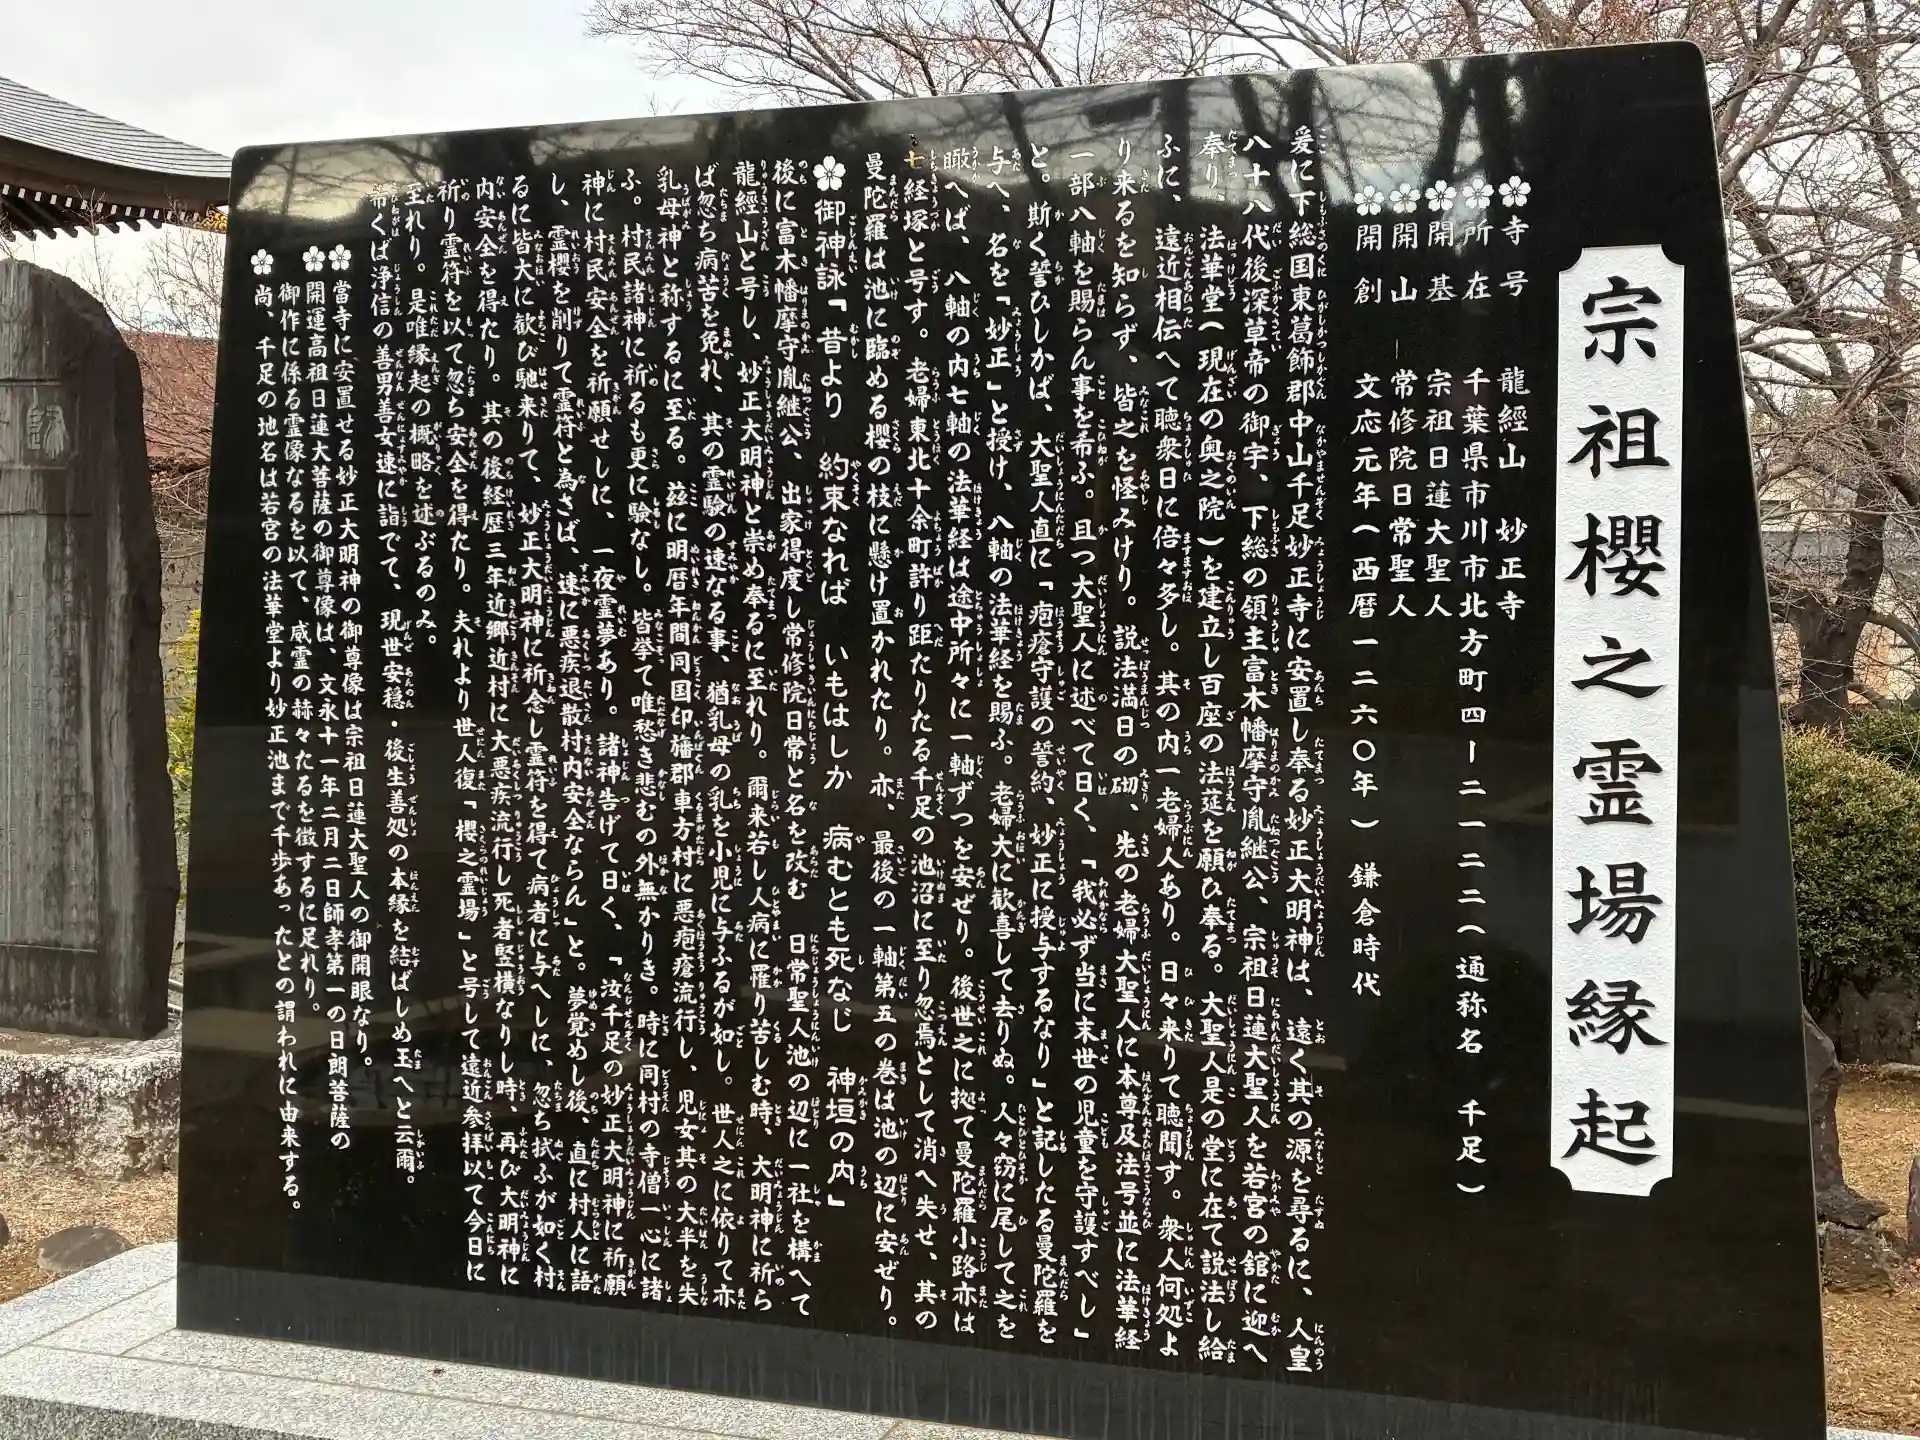 宗祖櫻之霊場縁起
寺号　龍經山　妙正寺
所在　千葉県市川市北方町四ー二一二二(通称名　千足)
開基　宗祖日蓮大聖人
開山　常修院日常聖人
開創　文応元年(西暦一二六〇年)鎌倉時代
爰に下総国東葛飾郡中山千足妙正寺に安置し奉る妙正大明神は、遠く其の源を尋るに、人皇
八十八代後深草帝の御宇、下総の領主富木幡摩守胤継公、宗祖日蓮大聖人を若宮の舘に迎へ
奉り、法華堂(現在の奥之院)を建立し百座の法莚を願ひ奉る。大聖人是の堂に在て説法し給
ふに、遠近相伝へて聴衆日に倍々多し。其の内一老婦人あり。日々来りて聴聞す。衆人何処よ
り来るを知らず、皆之を怪みけり。説法満日の砌、先の老婦大聖人に本尊及法号並に法華経
一部八軸を賜らん事を希ふ。且つ大聖人に述べて曰く、「我必ず当に末世の児童を守護すべし」
と。斯く誓ひしかば、大聖人直に「疱瘡守護の誓約、妙正に授与するなり」と記したる曼陀羅を
与へ、名を「妙正」と授け、八軸の法華経を賜ふ。老婦大に歓喜して去りぬ。人々窃に尾して之を
瞰へば、八軸の内七軸の法華経は途中所々に一軸ずつを安ぜり。後世之に拠て曼陀羅小路亦は
七経塚と号す。老婦東北十余町許り距たりたる千足の池沼に至り忽焉として消へ失せ、其の
曼陀羅は池に臨める櫻の枝に懸け置かれたり。亦、最後の一軸第五の巻は池の辺に安ぜり。
御神詠「昔より　約束なれば　いもはしか　病むとも死なじ　神垣の内」
後に富木幡摩守胤継公、出家得度し常修院日常と名を改む　日常聖人池の辺に一社を構へて
龍經山と号し、妙正大明神と崇め奉るに至れり。爾来若し人病に罹り苦しむ時、大明神に祈ら
ば忽ち病苦を免れ、其の霊験の速なる事、猶乳母の乳を小児に与ふるが如し。世人之に依りて亦
乳母神と称するに至る。茲に明暦年間同国印旛郡車方村に悪疱瘡流行し、児女其の大半を失
ふ。村民諸神に祈るも更に験なし。皆挙て唯愁き悲むの外無かりき。時に同村の寺僧一心に諸
神に村民安全を祈願せしに、一夜霊夢あり。諸神告げて曰く、「汝千足の妙正大明神に祈願
し、霊櫻を削りて霊符と為さば、速に悪疾退散村内安全ならん」と。夢覚めし後、直に村人に語
るに皆大に歓び馳来りて、妙正大明神に祈念し霊符を得て病者に与へしに、忽ち拭ふが如く村
内安全を得たり。其の後経歴三年近郷近村に大悪疾流行し死者竪横なりし時、再び大明神に
祈り霊符を以て忽ち安全を得たり。夫れより世人復「櫻之霊場」と号して遠近参拝以て今日に
至れり。是唯縁起の概略を述ぶるのみ。
希くば浄信の善男善女速に詣でて、現世安穏・後生善処の本縁を結ばしめ玉へと云爾。
當寺に安置せる妙正大明神の御尊像は宗祖日蓮大聖人の御開眼なり。
開運高祖日蓮大菩薩の御尊像は、文永十一年二月二日師孝第一の日朗菩薩の
御作に係る霊像なるを以て、威霊の赫々たるを徴するに足れり。
尚、千足の地名は若宮の法華堂より妙正池まで千歩あったとの謂われに由来する。